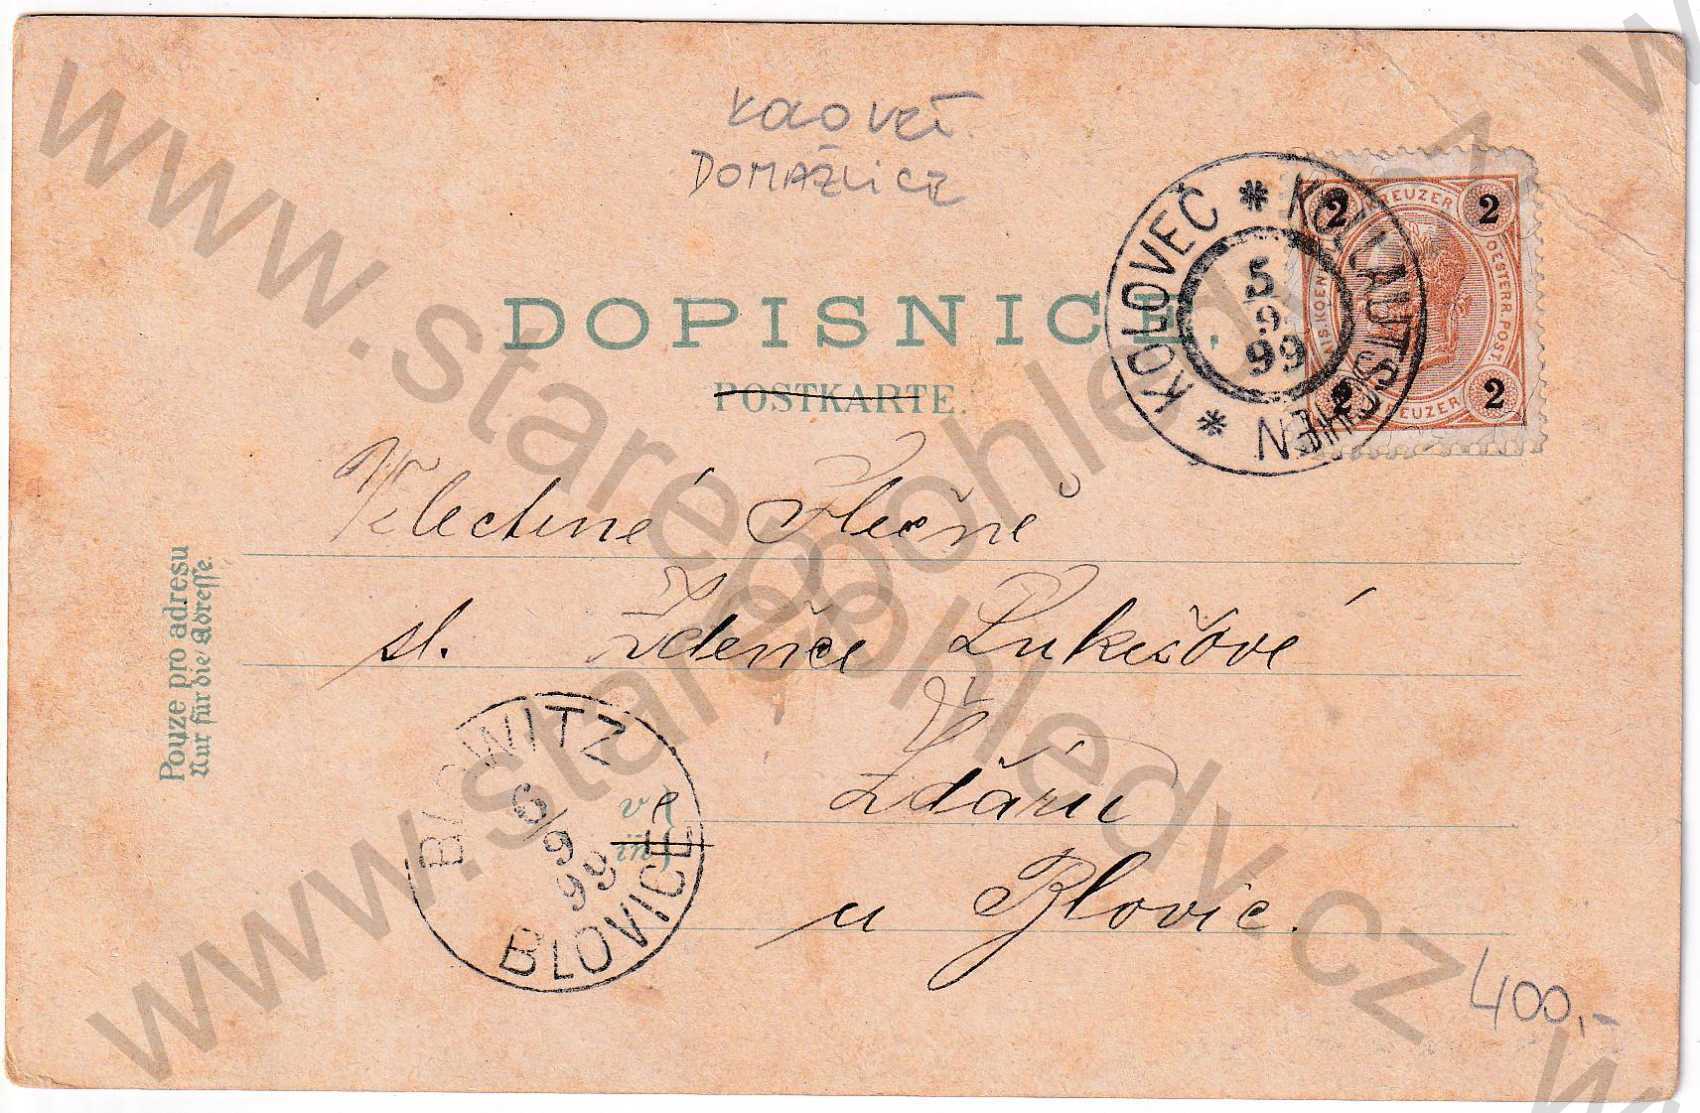 Koloveč
DOMAŽLICE
DOPISNICE.
POSTKARTE.
* KOLOVEČ * KOLLAUTSCHEN
5
9
99
2 KREUZER 2
OESTERR. POST.
2 KREUZER 2
Velectěné Slečně
sl. Zdence Lukešové
ve Ždáru
in
u Blovic.
Pouze pro adresu
Nur für die Adresse.
BLOWITZ
6/9
99
BLOVICE
400,-
www.starepohledy.cz
www.starepohledy.cz